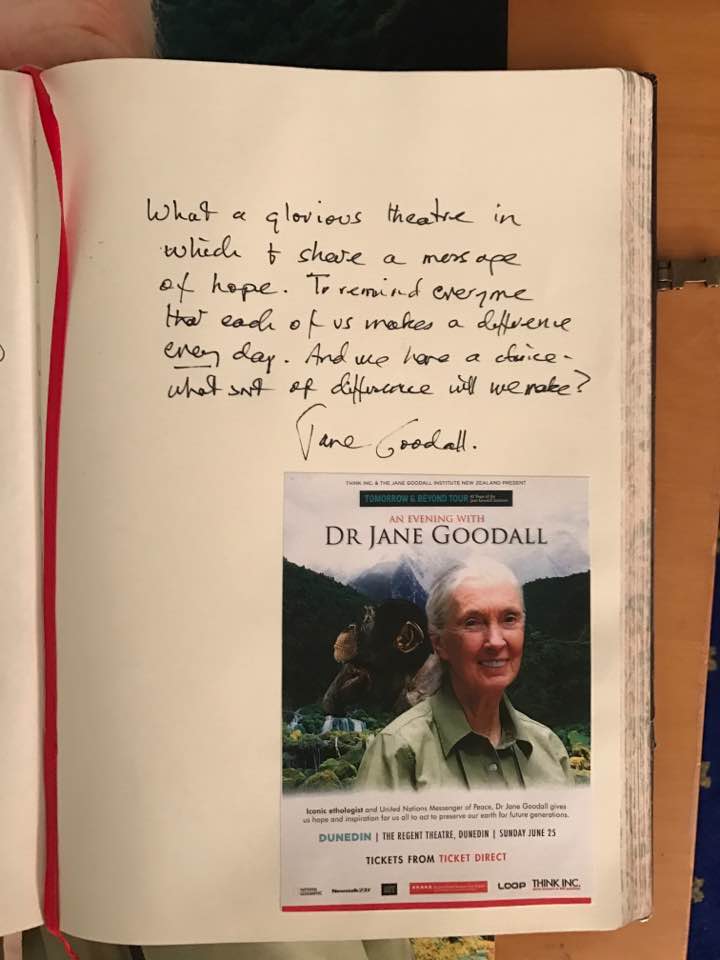 What a glorious theatre in
which to share a message
of hope. To remind everyone
that each of us makes a difference
every day. And we have a choice –
what sort of difference will we make?
Jane Goodall.
THINK INC. & THE JANE GOODALL INSTITUTE NEW ZEALAND PRESENT
TOMORROW & BEYOND TOUR
AN EVENING WITH
DR JANE GOODALL
Iconic ethologist and United Nations Messenger of Peace, Dr Jane Goodall gives
us hope and inspiration for us all to act to preserve our earth for future generations.
DUNEDIN | THE REGENT THEATRE, DUNEDIN | SUNDAY JUNE 25
TICKETS FROM TICKET DIRECT
NATIONAL GEOGRAPHIC Newstalk ZB LOOP THINK INC.